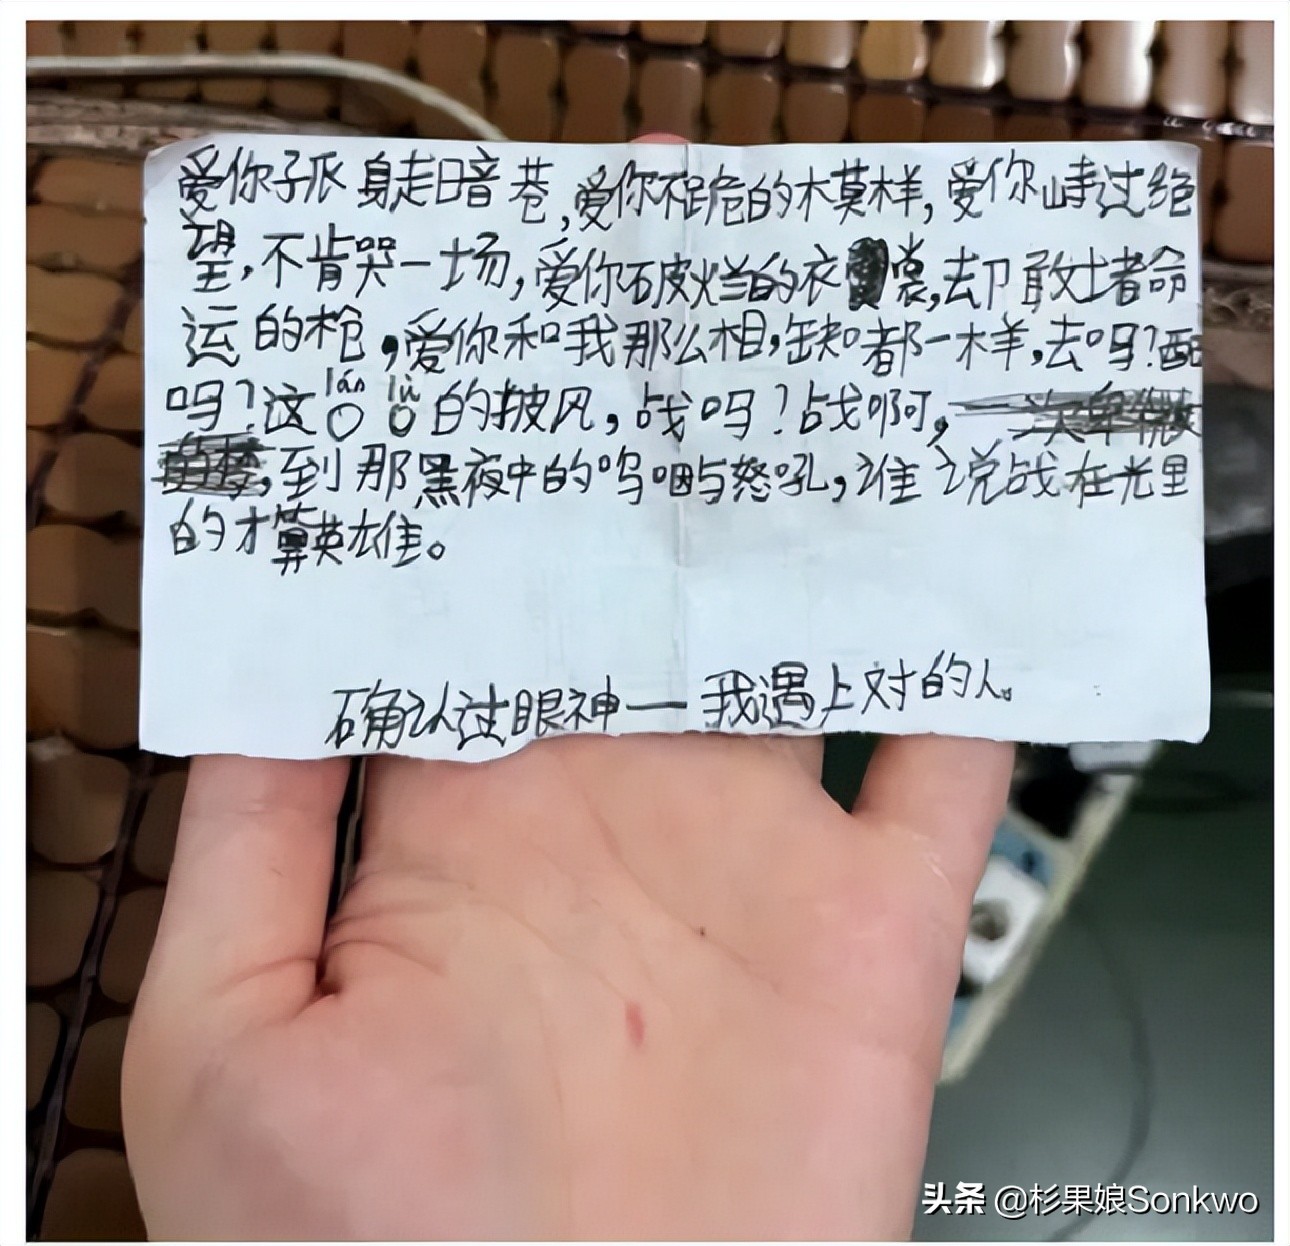 爱你孤身走暗巷,爱你不跪的模样,爱你峙过绝
望,不肯哭一场,爱你破烂的衣裳,却敢堵命
运的枪,爱你和我那么相,缺都一样,去吗?配
吗?这○lán ○lǚ的披风,战吗?战啊,
到那黑夜中的呜咽与怒吼,谁说战在光里
的才算英雄。
确认过眼神一我遇上对的人。
头条 @杉果娘Sonkwo